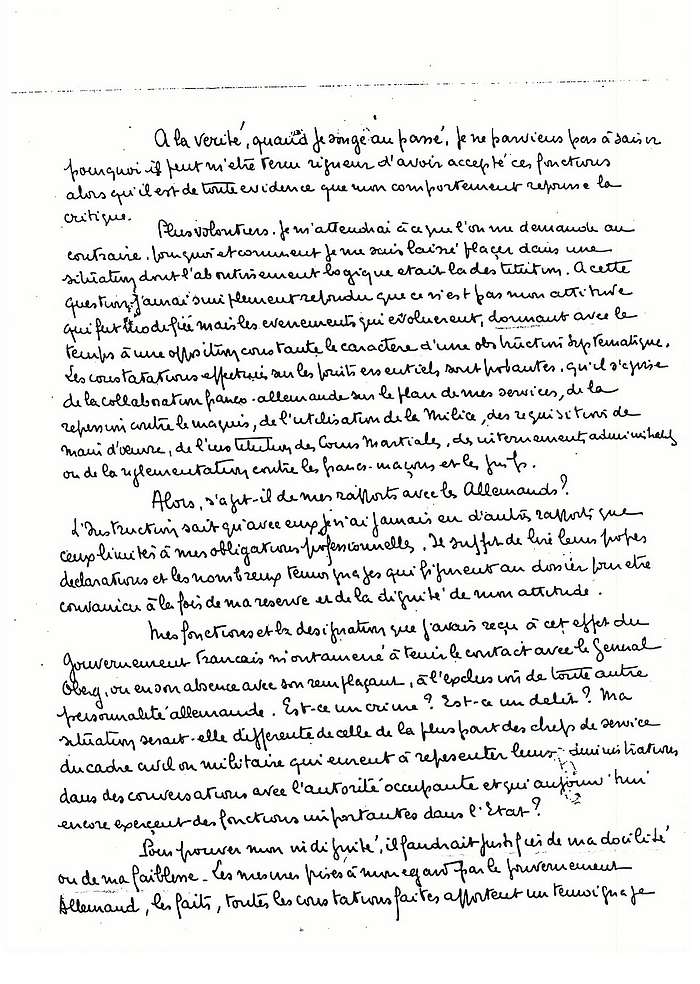 A la verité, quand je songe au passé, je ne parviens pas à saisir
pourquoi il peut m'etre tenu rigueur d'avoir accepté ces fonctions
alors qu'il est de toute evidence que mon comportement repousse la
critique.
Plus volontiers. Je m'attendrai à ce que l'on me demande au
contraire. Pourquoi et comment je me suis laissé placer dans une
situation dont l'aboutissement logique etait la destitution. A cette
question, j'aurai simplement repondu que ce n'est pas mon attitude
qui fut modifiée mais les evenements qui évoluerent, donnant avec le
temps à une opposition constante le caractère d'une obstruction systematique.
Les constatations effectuées sur les points essentiels sont probantes, qu'il s'agisse
de la collaboration franco-allemande sur le plan de mes services, de la
repression contre le maquis, de l'utilisation de la Milice, des requisitions de
main d'œuvre, de l'institution des Cours Martiales, des internements administratifs
ou de la reglementation contre les francs-maçons et les juifs.
Alors, s'agit-il de mes rapports avec les Allemands?
L'Instruction sait qu'avec eux je n'ai jamais eu d'autres rapports que
ceux limités à mes obligations professionnelles. Il suffit de lire leurs propres
declarations et les nombreux temoignages qui figurent au dossier pour etre
convaincu à la fois de ma reserve et de la dignité de mon attitude.
Mes fonctions et la designation que j'avais reçu à cet effet du
Gouvernement Francais m'ont amené à tenir le contact avec le General
Oberg, ou en son absence avec son remplaçant, à l'exclusion de toute autre
personnalité allemande. Est-ce un crime? Est-ce un delit? Ma
situation serait-elle differente de celle de la plus part des chefs de service
du cadre civil ou militaire qui eurent à representer leurs administrations
dans des conversations avec l'autorité occupante et qui aujourd'hui
encore exerçent des fonctions importantes dans l'Etat?
Pour prouver mon indignité, il faudrait justifier de ma docilité
ou de ma faiblesse. Les mesures prises à mon egard par le gouvernement
Allemand, les faits, toutes les constatations faites apportent un temoignage